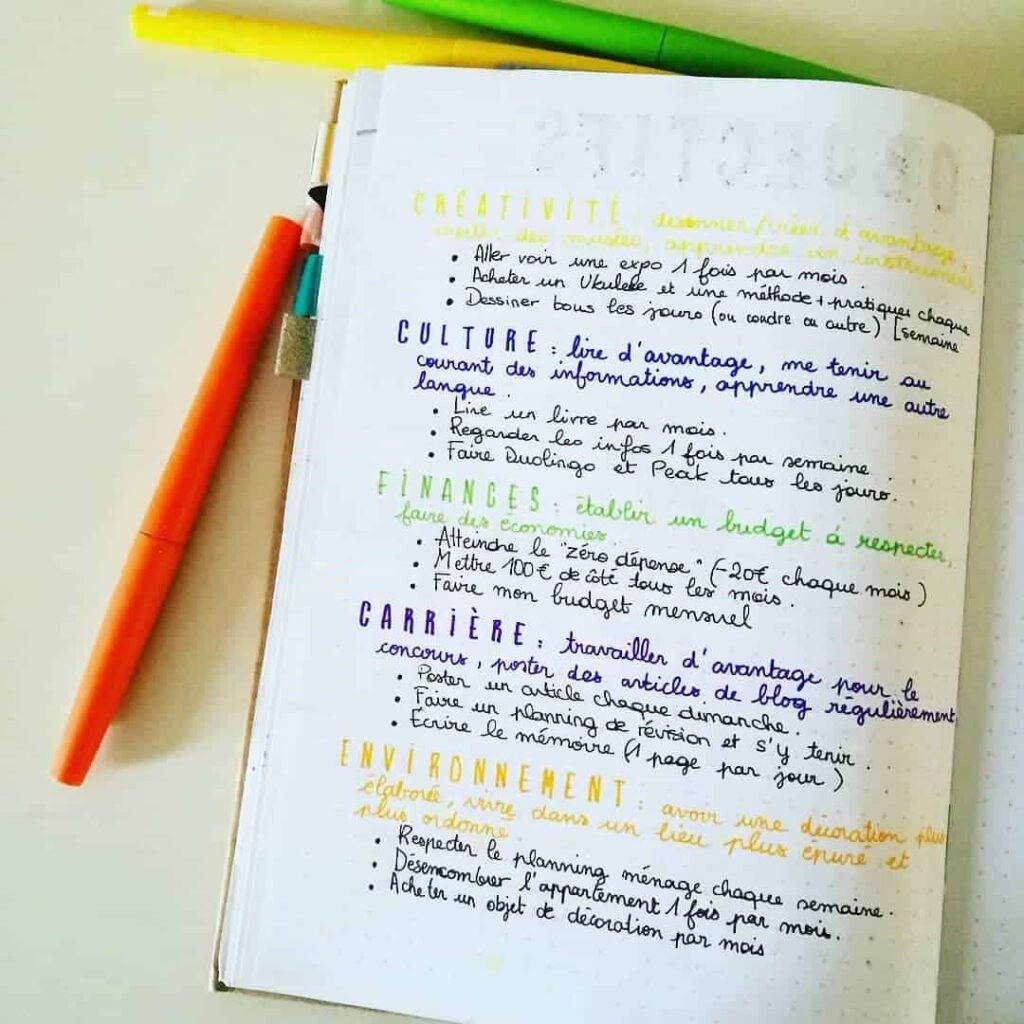 OBJECTIFS
CRÉATIVITÉ : dessinner/créer d'avantage,
visiter des musées, apprendre un instrument
• Aller voir une expo 1 fois par mois.
• Acheter un Ukulele et une méthode + pratiquer chaque
• Dessiner tous les jours (ou coudre ou autre) [semaine
CULTURE : lire d'avantage, me tenir au
courant des informations, apprendre une autre
langue.
• Lire un livre par mois.
• Regarder les infos 1 fois par semaine.
• Faire Duolingo et Peak tous les jours.
FINANCES : établir un budget à respecter,
faire des économies.
• Atteindre le "zéro dépense" (-20€ chaque mois)
• Mettre 100€ de côté tous les mois.
• Faire mon budget mensuel
CARRIÈRE : travailler d'avantage pour le
concours, poster des articles de blog régulièrement
• Poster un article chaque dimanche.
• Faire un planning de révision et s'y tenir.
• Écrire le mémoire (1 page par jour)
ENVIRONNEMENT : avoir une décoration plus
élaborée, vivre dans un lieu plus épuré et
plus ordonné.
• Respecter le planning ménage chaque semaine.
• Désencombrer l'appartement 1 fois par mois.
• Acheter un objet de décoration par mois